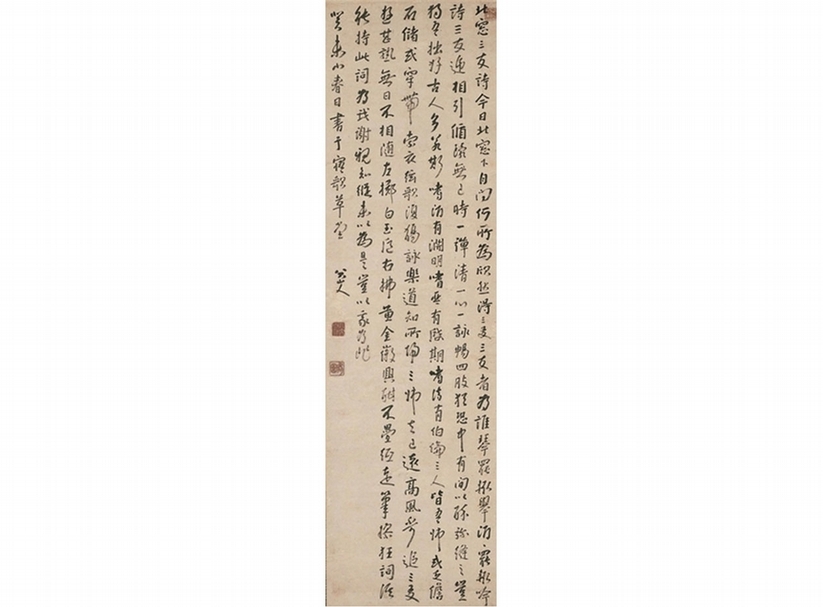 北窓三友詩今日北窓下自問何所為欣然得三友三友者為誰琴罷輒舉酒酒罷輒吟
詩三友遞相引循環無已時一彈清一心一詠暢四肢猶恐中有間以醉彌縫之豈
獨吾拙好古人多若斯嗜酒有淵明嗜琴有啟期嗜詩有伯倫三人皆吾師或乏儋
石儲或穿帶索衣弦歌復觴詠樂道知所歸三師去已遠高風不可追三友
游甚熟無日不相隨左擲白玉卮右拂黃金徽興酣不疊紙走筆操狂詞誰
能持此詞為我謝親知縱未以為是豈以我為非
癸未小春日書于寤歌草堂
八大山人